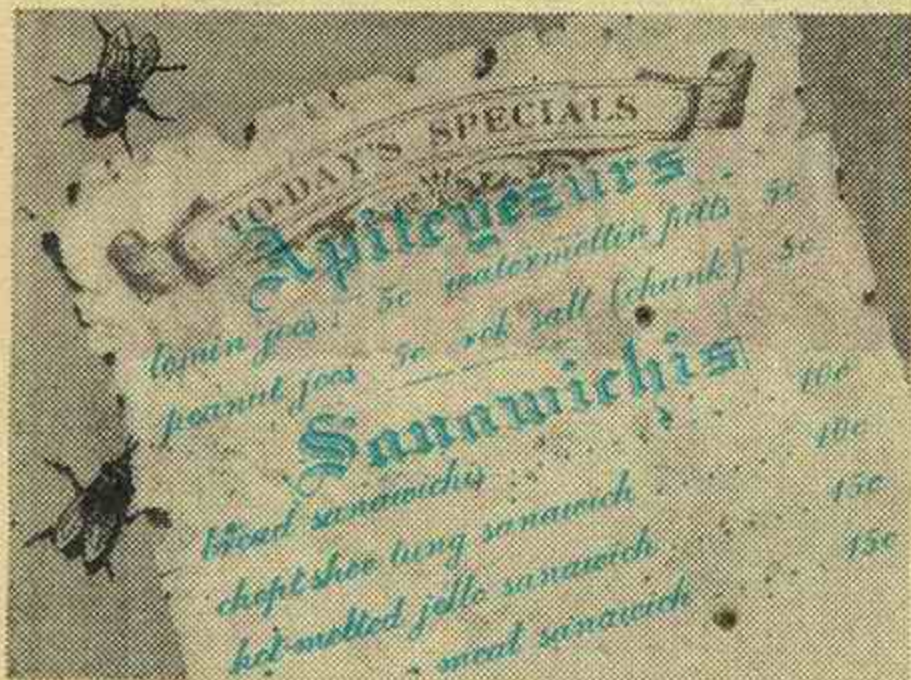 TO-DAY'S SPECIALS
Apiteyezurs
tomin joos 5c watermellin pitts 5c
peanut joos 5c rok salt (chunk) 5c
Sanawichis
bread sanawichis 10c
chopt shoe tung sanawich 10c
hot melted jello sanawich 15c
meat sanawich 15c